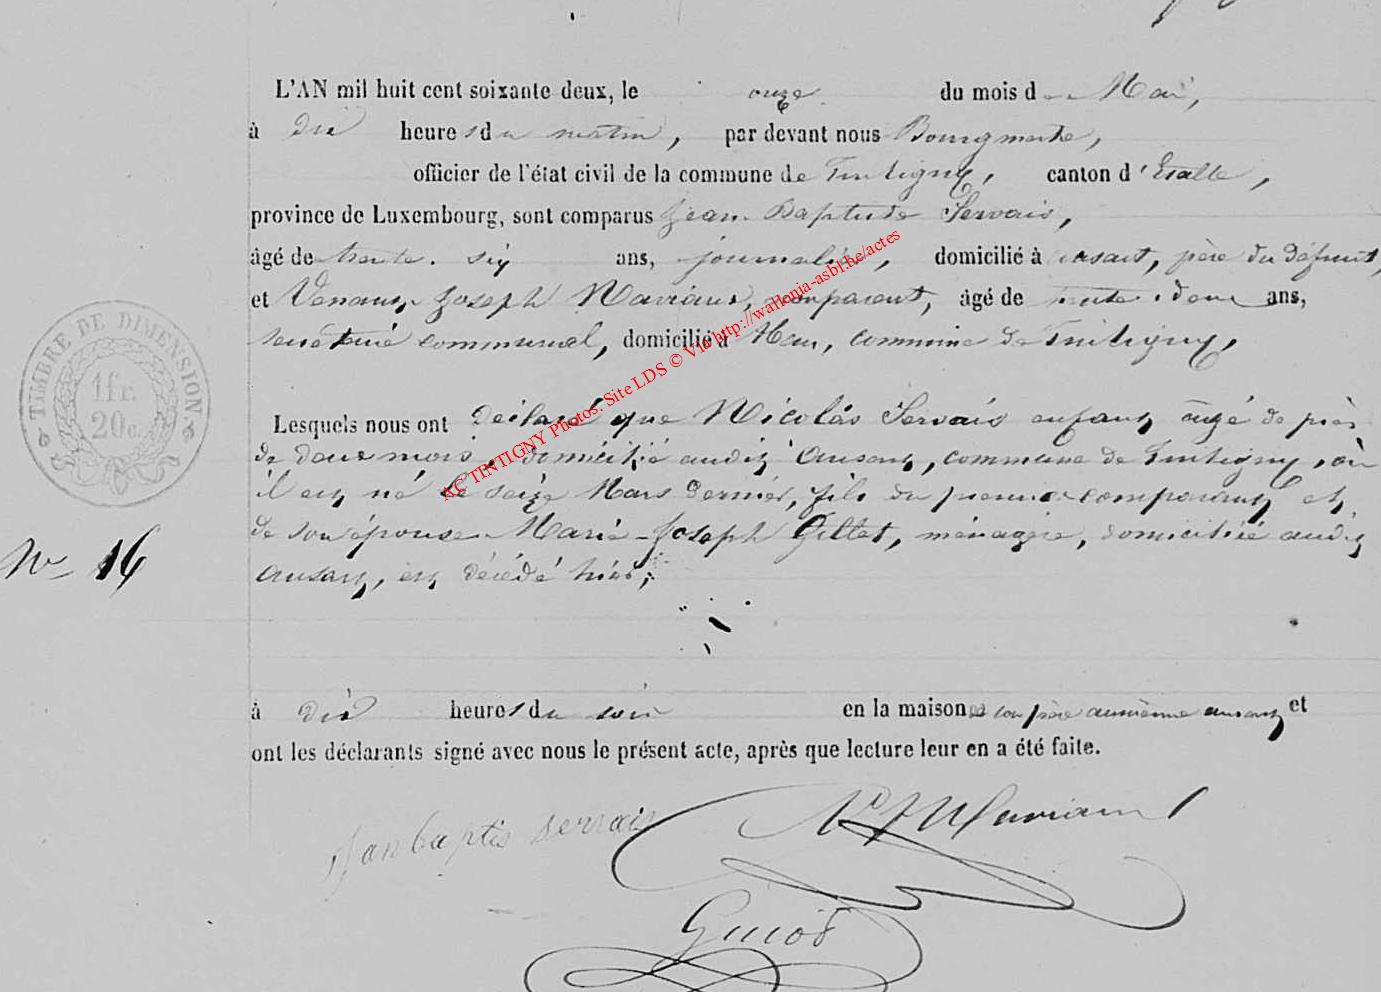 L'AN mil huit cent soixante deux, le onze du mois de Mai,
à dix heures du matin, par devant nous Bourgmestre,
officier de l'état civil de la commune de Tintigny, canton d'Etalle,
province de Luxembourg, sont comparus Jean Baptiste Servais,
âgé de trente-six ans, journalier, domicilié à Ansart, père du défunt,
et Venant Joseph Maviaux, comparent, âgé de trente-deux ans,
secrétaire communal, domicilié à Han, commune de Tintigny,
TIMBRE DE DIMENSION
1 fr.
20 c.
Lesquels nous ont déclaré que Nicolas Servais enfant âgé de près
de deux mois, domicilié audit Ansart, commune de Tintigny, où
il est né le seize Mars dernier, fils du premier comparant et
de son épouse Marie-Joseph Gillet, ménagère, domiciliée audit
Nº 16
Ansart, est décédé hier,
à dix heures du soir en la maison de son père au même Ansart et
ont les déclarants signé avec nous le présent acte, après que lecture leur en a été faite.
Janbaptis Servais
Guiot
AC TENTIGNY Photos. Site LDS © Via http://wallonia-asbl.be/actes